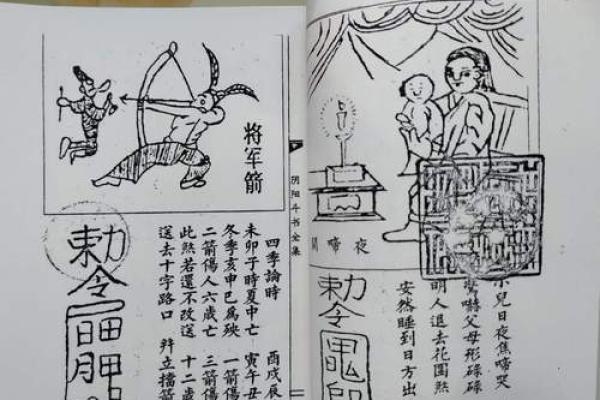 夜啼關
小兒日夜焦啼哭
驚嚇父母形碌碌
明人退去花園煞
安然睡到日方出
勅令
阴阳斗书全集
将军箭
四季論時 酉戌辰
未卯子時夏中亡 寅午丑
冬季亥申巳為殃 一箭傷
二箭傷人六歲亡 三箭傷
此煞若還不改送 十二歲
送去十字路口 立擋箭
勅令